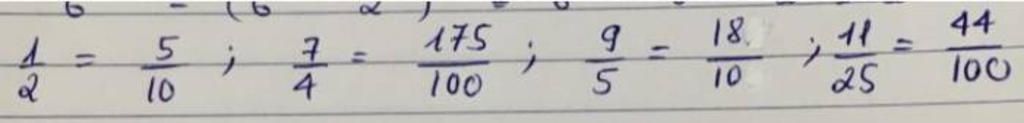 1/2 = 5/10 ; 7/4 = 175/100 ; 9/5 = 18/10 ; 11/25 = 44/100